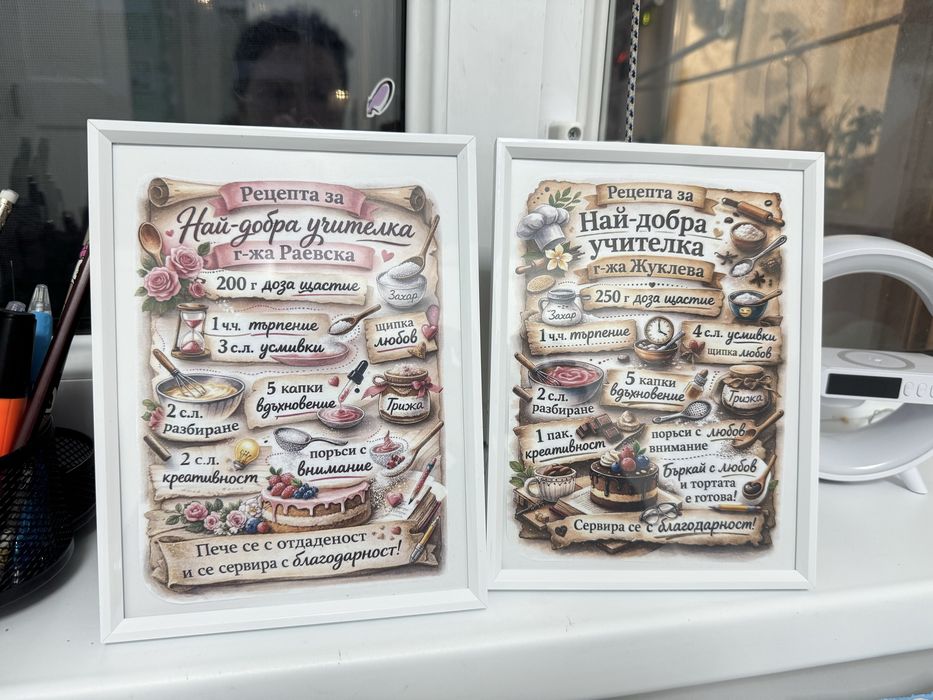 Рецепта за
Най-добра учителка
г-жа Раевска
200 г доза щастие
Захар
1 ч.ч. търпение
3 с.л. усмивки
щипка
любов
2 с.л.
разбиране
5 капки
вдъхновение
Грижа
2 с.л.
креативност
поръси с
внимание
Пече се с отдаденост
и се сервира с благодарност!
Рецепта за
Най-добра
учителка
г-жа Жуклева
250 г доза щастие
Захар
1 ч.ч. търпение
4 с.л. усмивки
щипка любов
2 с.л.
разбиране
5 капки
вдъхновение
Грижа
1 пак.
креативност
поръси с любов
внимание
Бъркай с любов
и тортата
е готова!
Сервира се с благодарност!